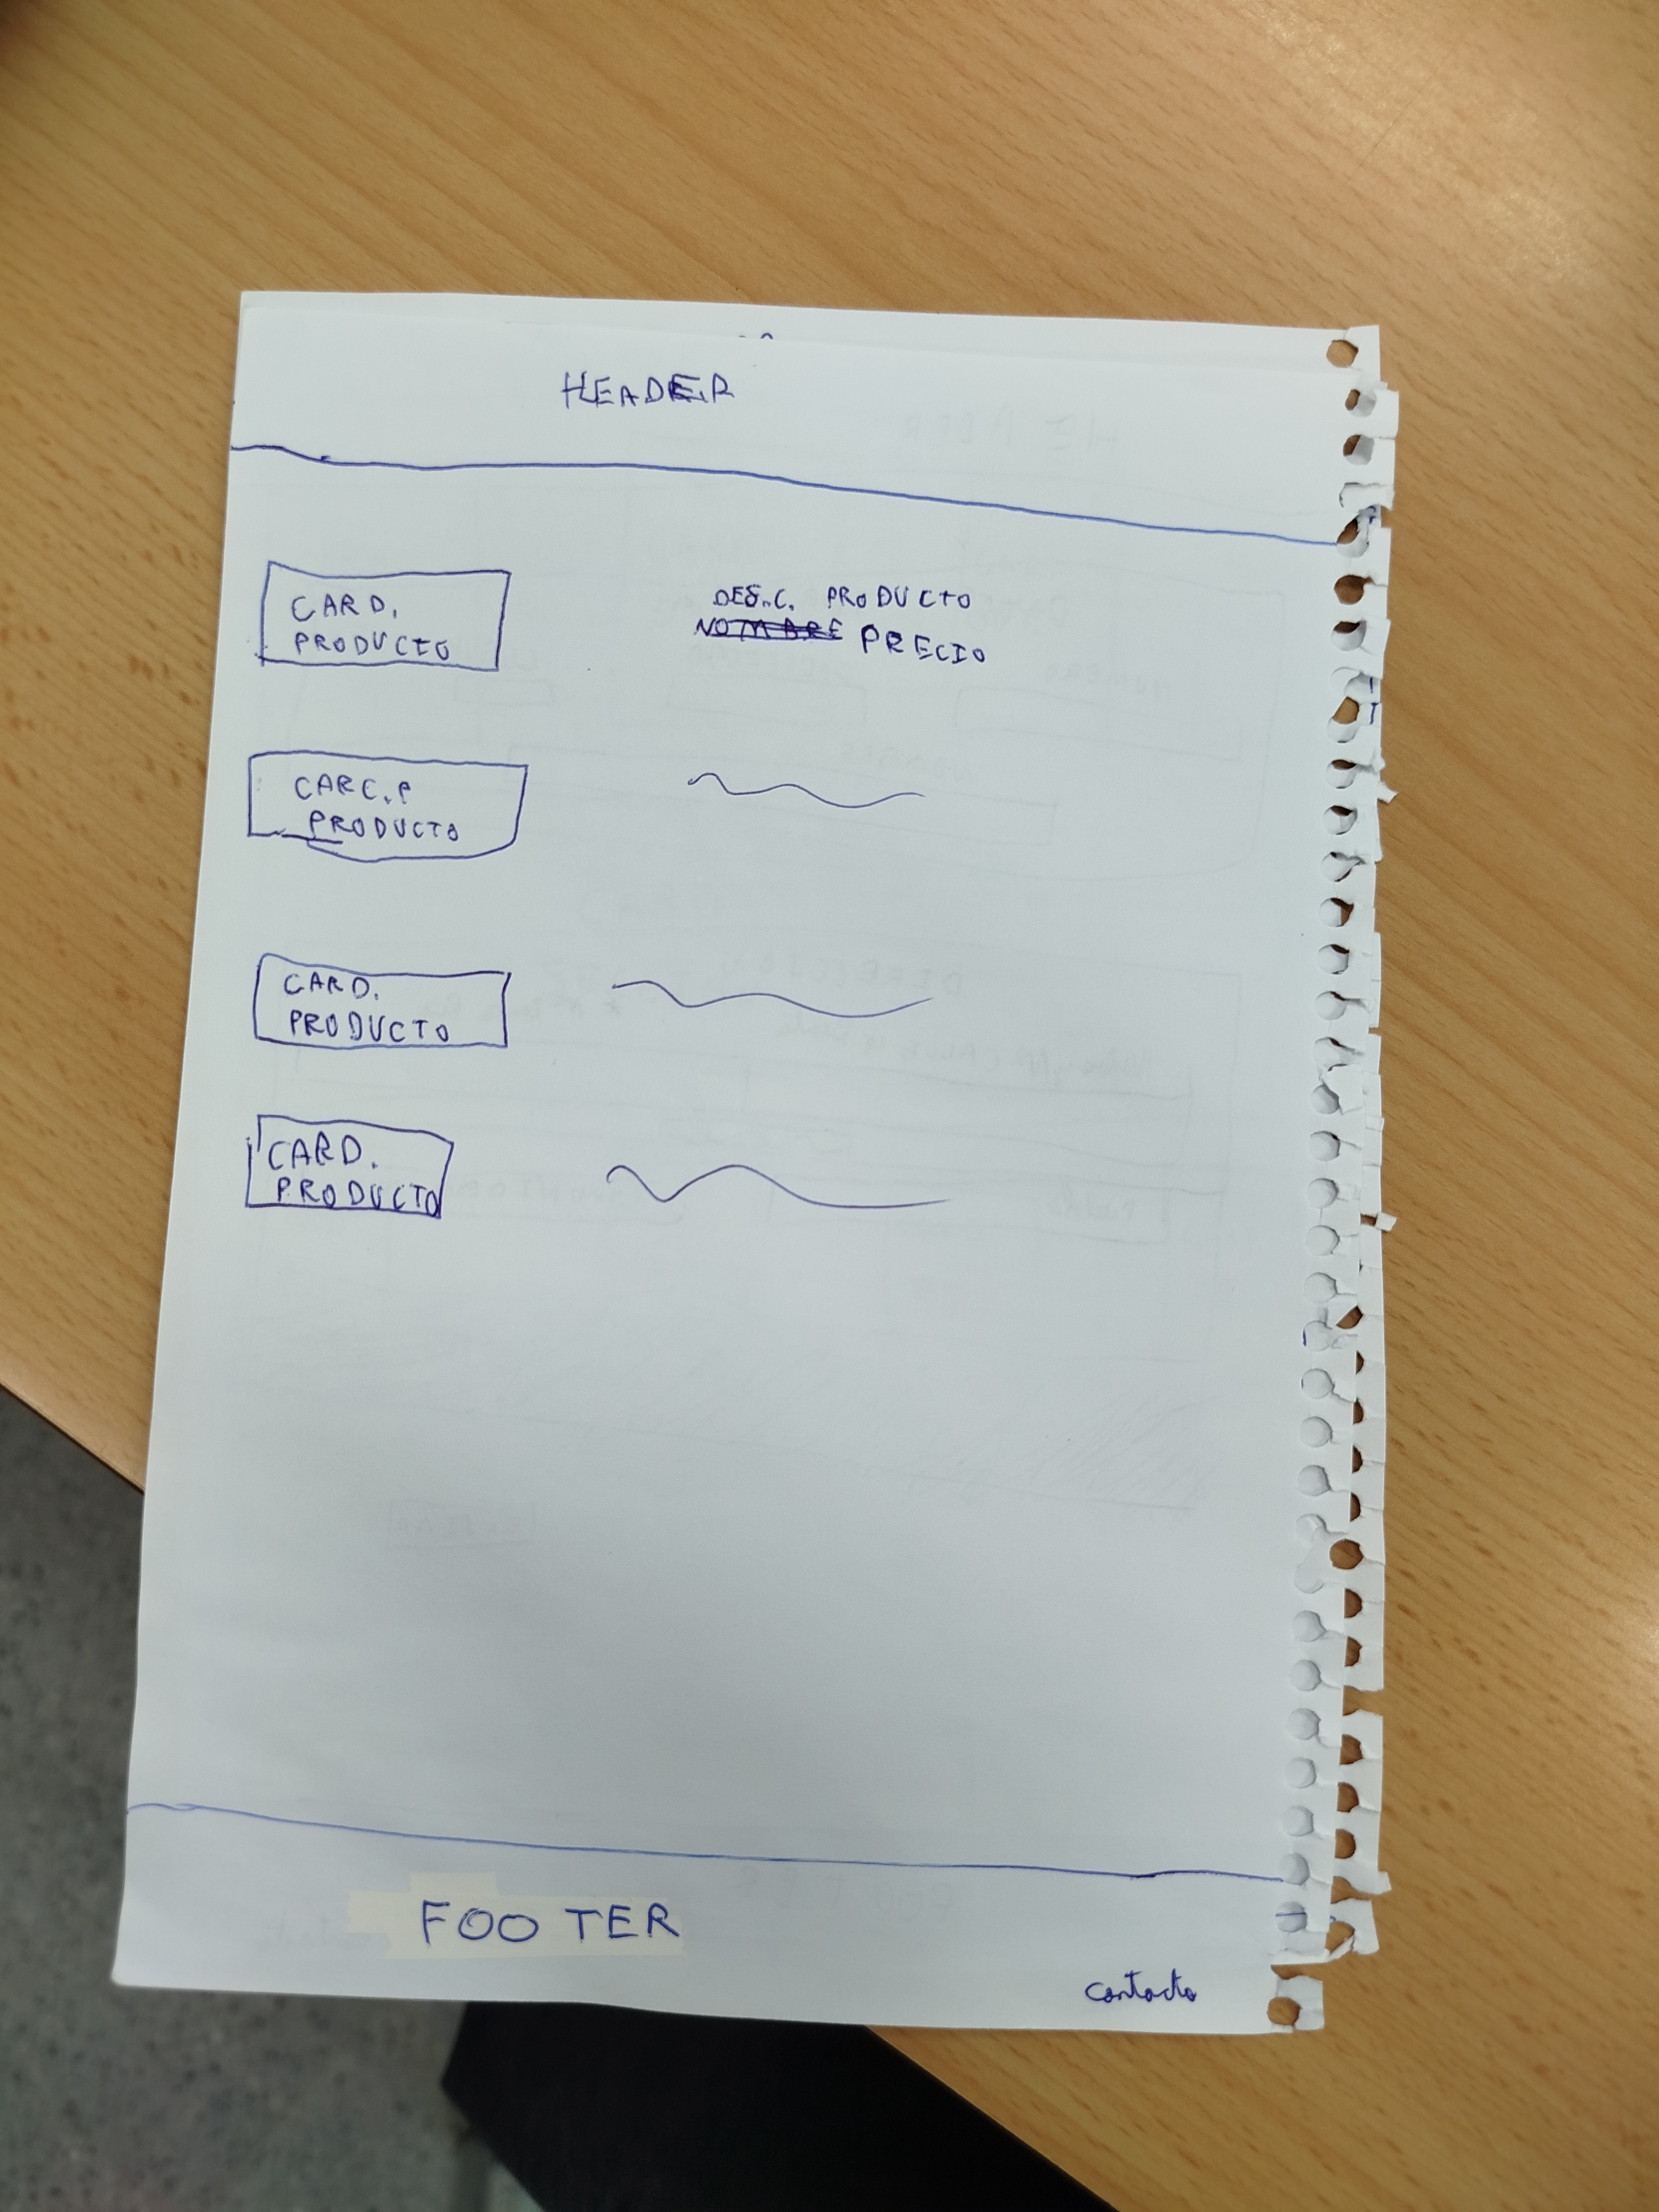 HEADER
CARD.
PRODUCTO
DES.C. PRODUCTO
NOMBRE PRECIO
CARC.P
PRODUCTO
CARD.
PRODUCTO
CARD.
PRODUCTO
FOOTER
contacto